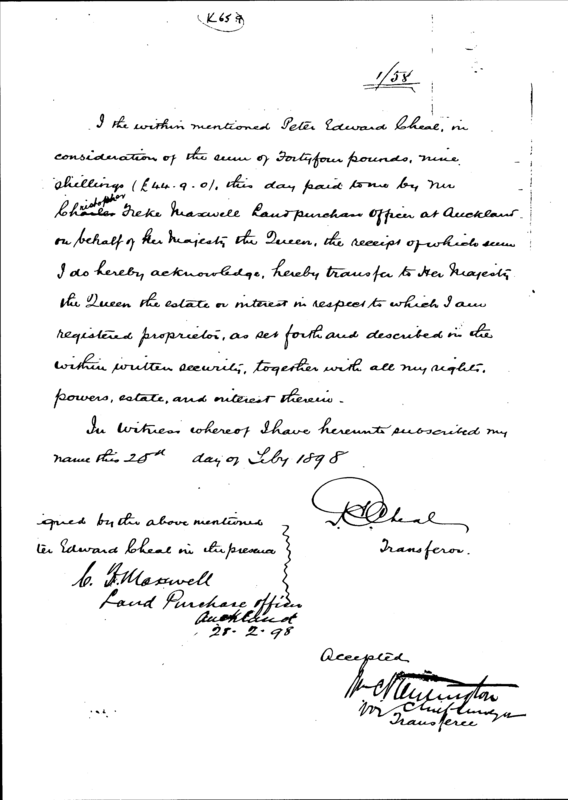 K657
1/58
I the within mentioned Peter Edward Cheal, in
consideration of the sum of Fortyfour pounds, nine
shillings (£44.9.0), this day paid to me by Mr
Christopher Freke Maxwell Land purchase Officer at Auckland
on behalf of Her Majesty the Queen, the receipt of which sum
I do hereby acknowledge, hereby transfer to Her Majesty
the Queen the estate or interest in respect to which I am
registered proprietor, as set forth and described in the
within written security, together with all my rights,
powers, estate, and interest therein.
In Witness whereof I have hereunto subscribed my
name this 28th day of Feby 1898
igned by the above mentioned
ter Edward Cheal in the presence
P.E. Cheal
Transferor.
C. F. Maxwell
Land Purchase Officer
Auckland
28.2.98
Accepted
Transferee